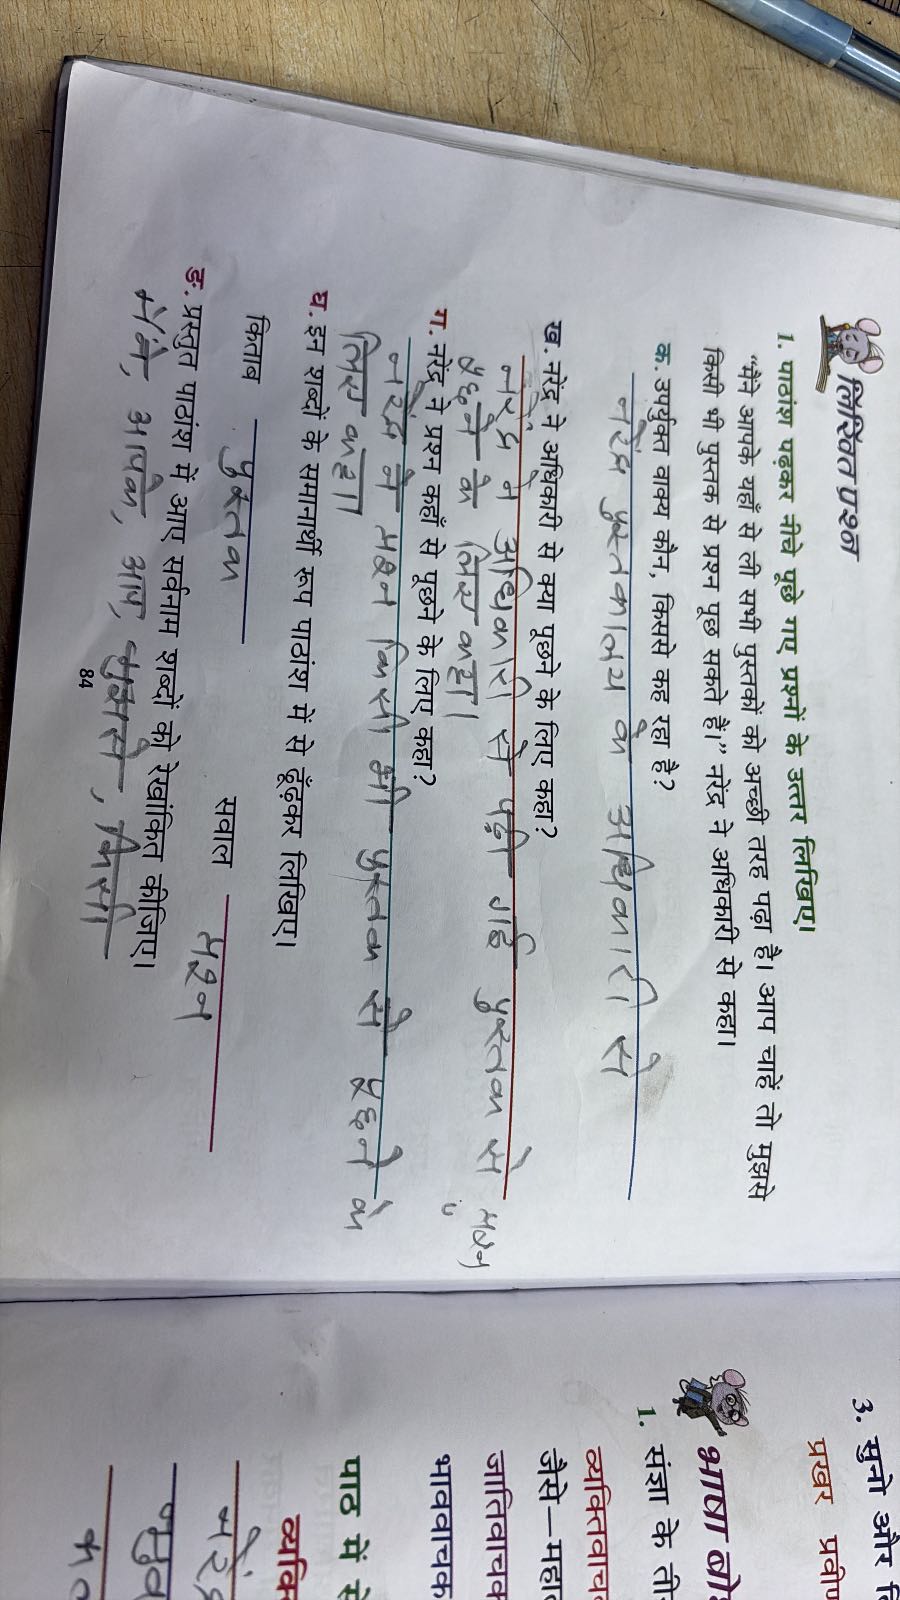 लिखित प्रश्न
1. पाठांश पढ़कर नीचे पूछे गए प्रश्नों के उत्तर लिखिए।
“मैंने आपके यहाँ से ली सभी पुस्तकों को अच्छी तरह पढ़ा है। आप चाहें तो मुझसे
किसी भी पुस्तक से प्रश्न पूछ सकते हैं।” नरेंद्र ने अधिकारी से कहा।
क. उपर्युक्त वाक्य कौन, किससे कह रहा है?
नरेंद्र पुस्तकालय के अधिकारी से
ख. नरेंद्र ने अधिकारी से क्या पूछने के लिए कहा?
नरेंद्र ने अधिकारी से पढ़ी गई पुस्तक से प्रश्न
पूछने के लिए कहा।
ग. नरेंद्र ने प्रश्न कहाँ से पूछने के लिए कहा?
नरेंद्र ने प्रश्न किसी भी पुस्तक से पूछने के
लिए कहा।
घ. इन शब्दों के समानार्थी रूप पाठांश में से ढूँढ़कर लिखिए।
किताब पुस्तक सवाल प्रश्न
ङ. प्रस्तुत पाठांश में आए सर्वनाम शब्दों को रेखांकित कीजिए।
मैंने, आपके, आप, मुझसे, किसी
84
3. सुनो और
प्रखर
भाषा
1. संज्ञा के
जैसे—
जातिवाचक
भाववाचक
पाठ में से